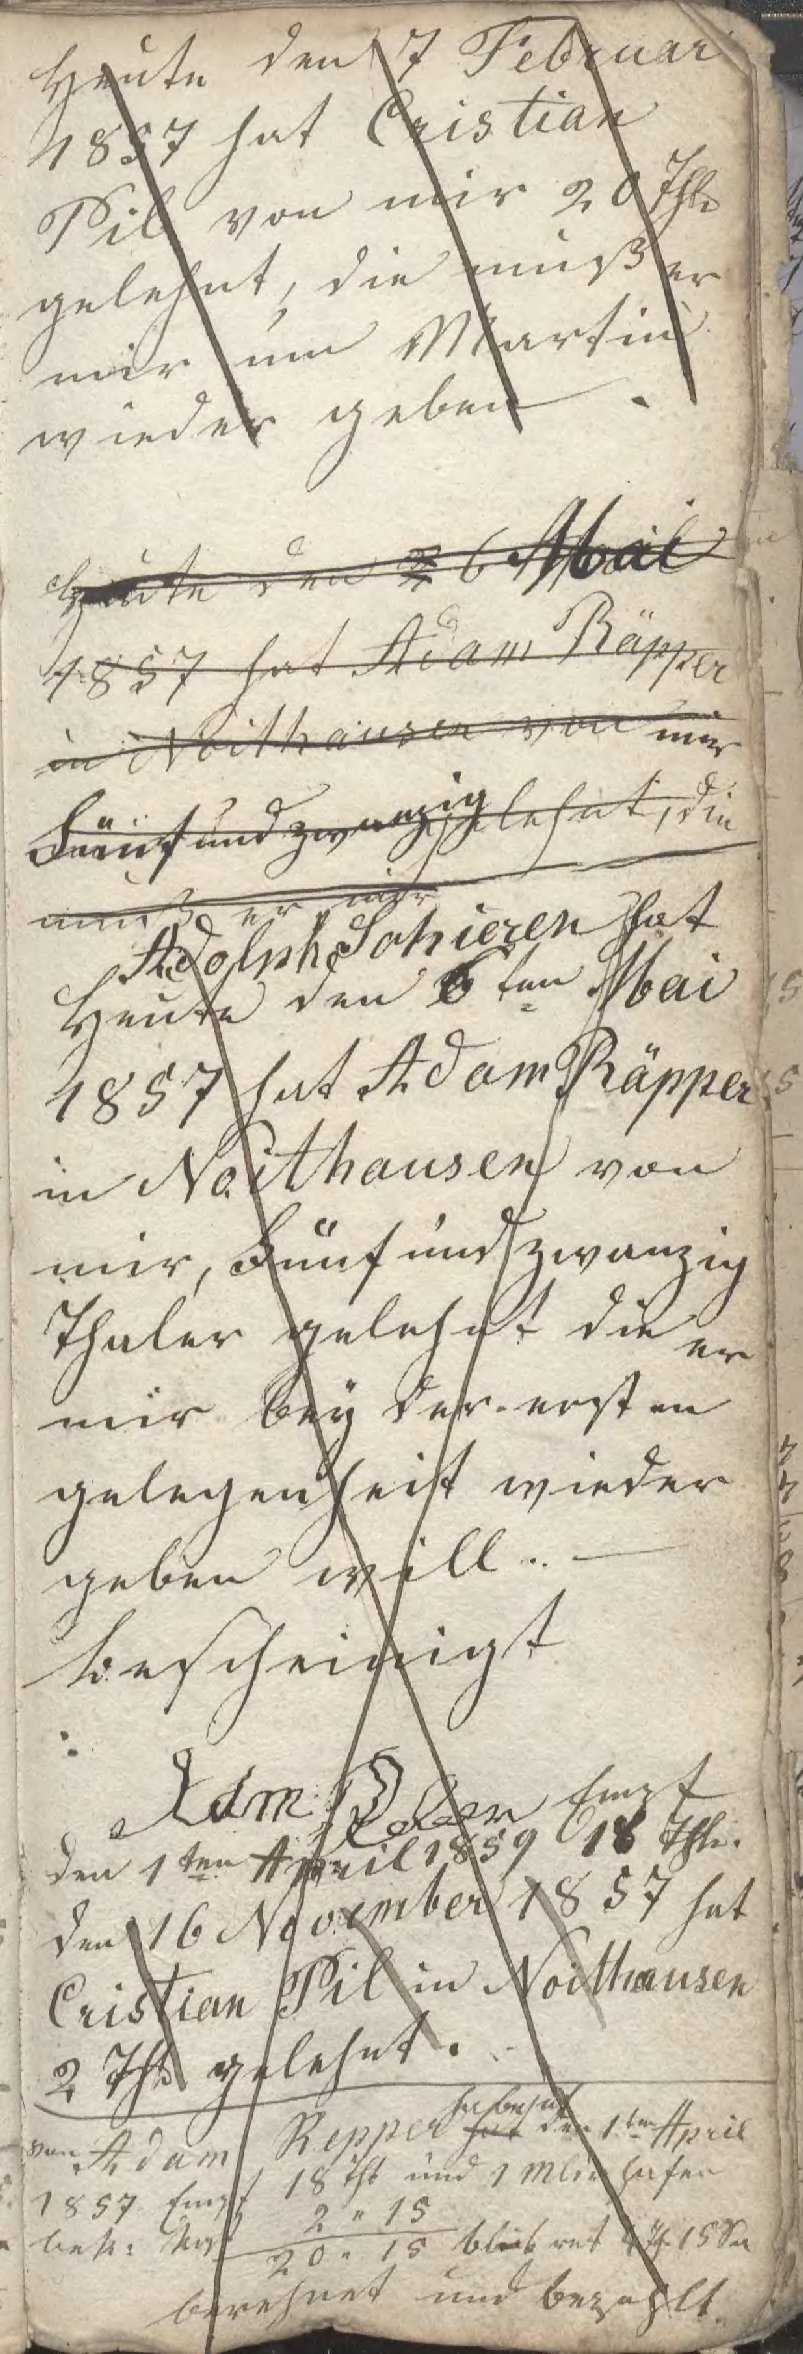 Heute den 7 Februar
1857 hat Cristian
Pil von mir 20 Thlr
gelehnt, die muß er
mir um Martin
wieder geben.
Heute den 6 Mai
1857 hat Adam Räpper
in Noithausen von mir
Fünf und zwanzig gelehnt, die
muß er mir
Adolph Schieren hat
Heute den 6ten Mai
1857 hat Adam Räpper
in Noithausen von
mir, Fünf und zwanzig
Thaler gelehnt die er
mir beÿ der ersten
gelegenheit wieder
geben will. —
bescheinigt
Adm Empf
den 1ten April 1859 18 Thlr.
den 16 November 1857 hat
Cristian Pil in Noithausen
2 Thlr gelehnt.
von Adam Repper hat den 1ten April
1857 Empf 18 Thl und 1 hafer
2 " 15
20 " 15 bleib rest 4 Th 15 Sr
berehnet und bezahlt